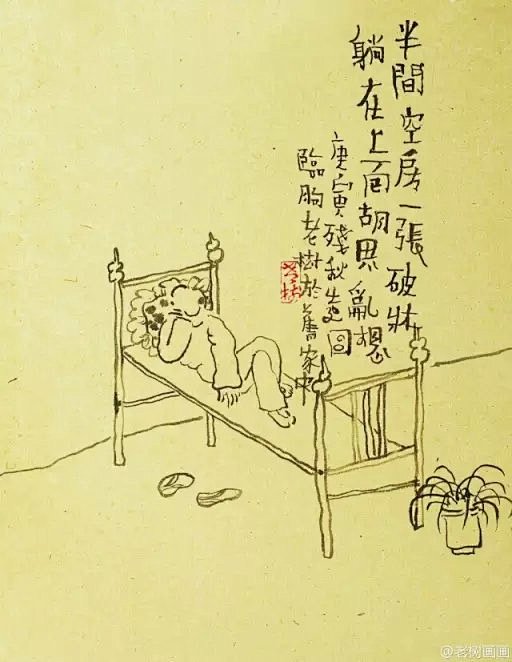 半間空房一張破牀
躺在上面胡思亂想
庚寅殘秋
臨朐老樹於舊家中
@老树画画